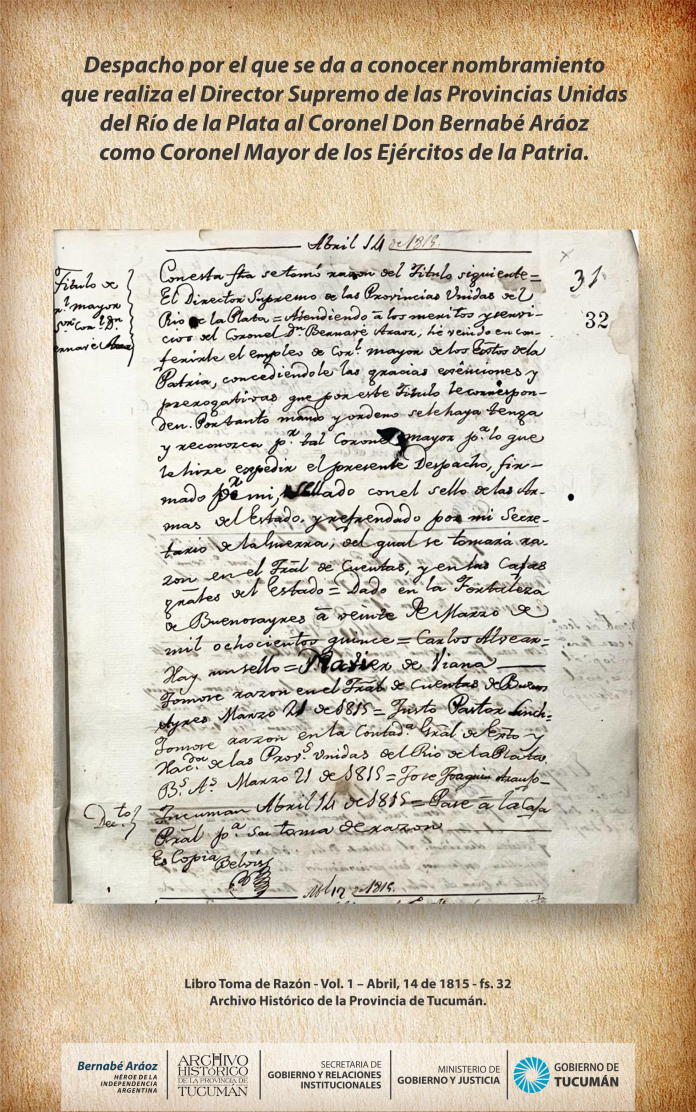 Despacho por el que se da a conocer nombramiento
que realiza el Director Supremo de las Provincias Unidas
del Río de la Plata al Coronel Don Bernabé Aráoz
como Coronel Mayor de los Ejércitos de la Patria.
Abril 14 de 1815.
31
32
Titulo de
mayor
Con esta fha se tomó razon del Titulo siguiente=
El Director Supremo de las Provincias Unidas del
Rio de la Plata = Atendiendo a los meritos y servi-
cios del Coronel Dn Bernavé Araoz, he venido en con-
ferirle el empleo de Corl. mayor de los Extos de la
Patria, concediendole las gracias exenciones y
prerogativas que por este Titulo le correspon-
den. Por tanto mando y ordeno se le haya tenga
y reconozca pr. tal Coronel mayor pr. lo que
le hize expedir el presente Despacho, fir-
mado pr mi, sellado con el sello de las Ar-
mas del Estado, y refrendado por mi Secre-
tario de la Guerra, del qual se tomará ra-
zon en el Tral de Cuentas, y en las Caxas
grales del Estado = Dado en la Fortaleza
de Buenosayres à veinte de Marzo de
mil ochocientos quince = Carlos Alvear=
Hay un sello = Xavier de Viana
Tomose razon en el Tral de Cuentas de Buenos
Ayres Marzo 21 de 1815 = Justo Pastor Linch=
Tomose razon en la Contada. Gral de Exto y
Hacda. de las Provs. Unidas del Rio de la Plata
Bs. As. Marzo 21 de 1815 = Jose Joaquin
Decto.
Tucuman Abril 14 de 1815 = Pase à la Caxa
Pral pa. su toma de razon
Es Copia
de 1815.
Libro Toma de Razón - Vol. 1 – Abril, 14 de 1815 - fs. 32
Archivo Histórico de la Provincia de Tucumán.
Bernabé Aráoz
HÉROE DE LA
INDEPENDENCIA
ARGENTINA
ARCHIVO
HISTÓRICO
DE LA PROVINCIA DE
TUCUMÁN
SECRETARIA DE
GOBIERNO Y RELACIONES
INSTITUCIONALES
MINISTERIO DE
GOBIERNO Y JUSTICIA
GOBIERNO DE
TUCUMÁN